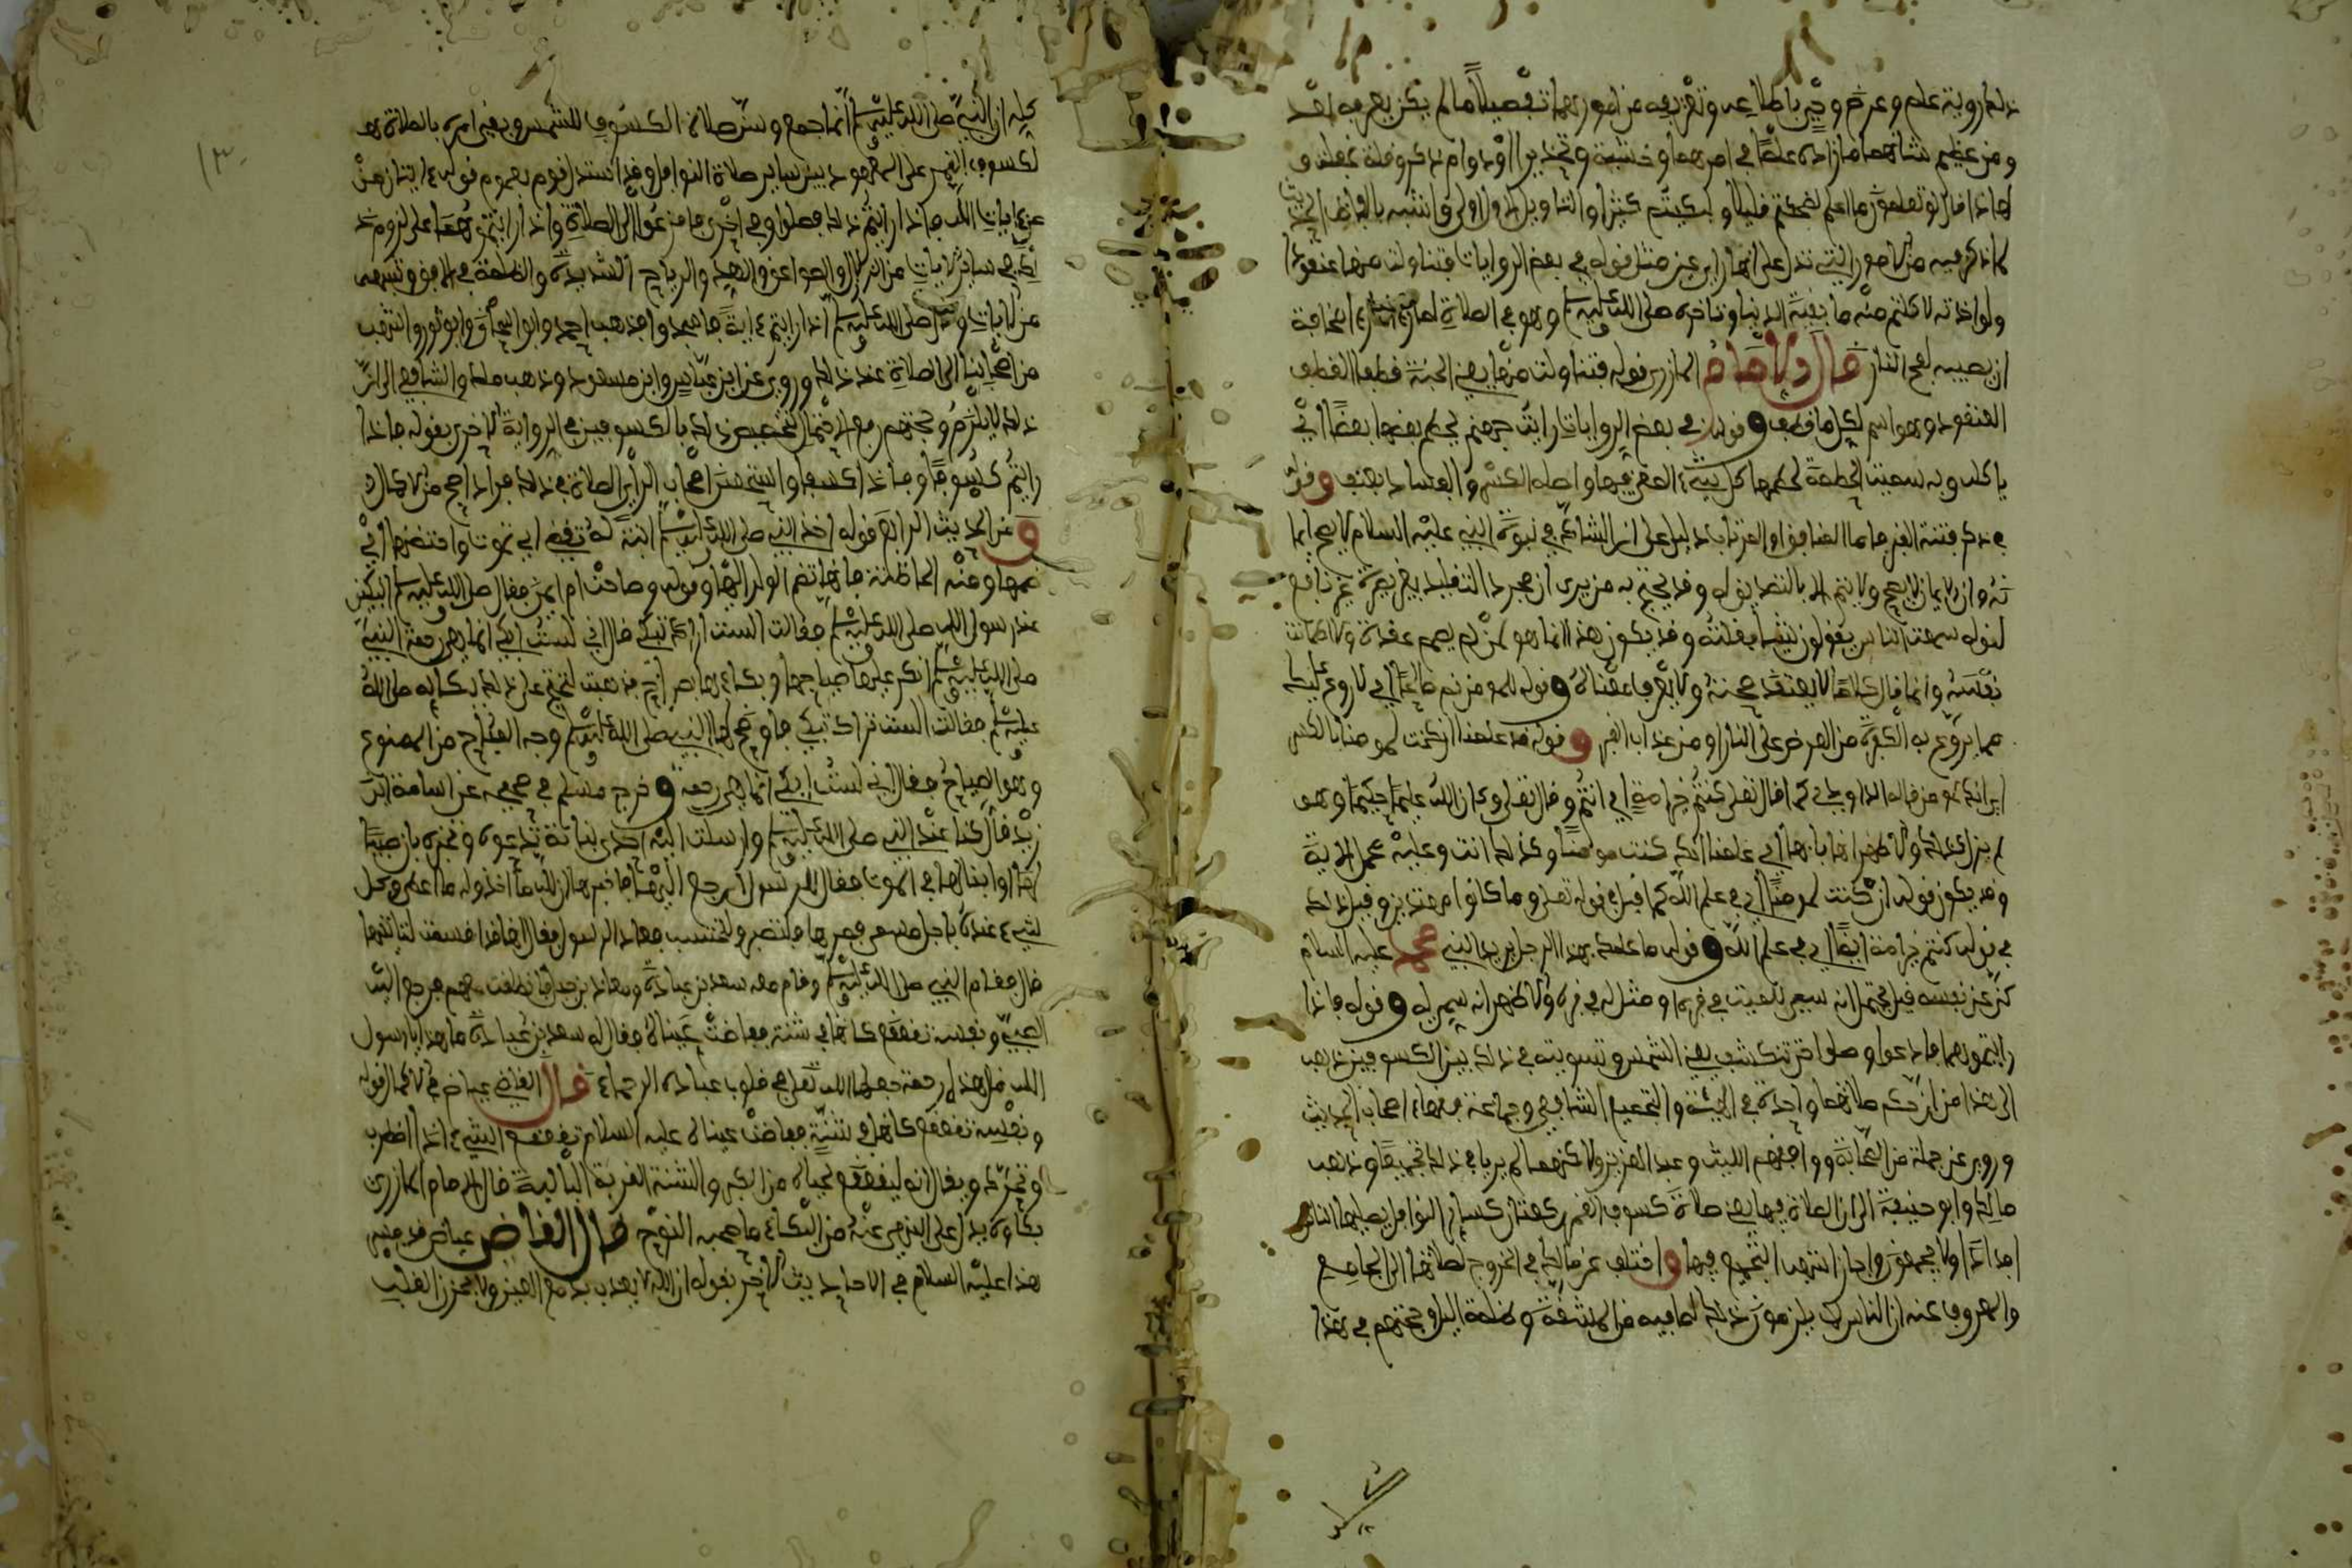 ذلك رؤية علم وعرض وحي باطلاعه وتعريفه من امورهما تفصيلا ما لم يكن يعرفه قبل
ومن عظيم شانهما ما زاده علما في امرهما وخشية وتحذيرا ودوام ذكر وقلة غفلة و
لهاذا قال لو تعلمون ما اعلم لضحكتم قليلا ولبكيتم كثيرا والتاويل الاول اولى واشبه بالفاظ الحديث
لما ذكر فيه من الامور التي تدل على انها راي عين مثل قوله في بعض الروايات فتناولت منها عنقودا
ولو اخذته لاكلتم منه ما بقيت الدنيا وتاخره صلى الله عليه وسلم وهو في الصلاة مخافة
ان يصيبه لفح النار قال الامام المازري قوله فتناولت منها يعني الجنة قطفا القطف
العنقود وهو اسم لكل ما قطف وقوله في بعض الروايات رايت جهنم يحطم بعضها بعضا اي
ياكل وبه سميت الحطمة لحطمها كل شيء القي فيها واصله الكسر والفساد بعنف وقوله
في ذكر فتنة القبر فاما المنافق او المرتاب دليل على ان الشاك في نبوة النبي عليه السلام لا يصح ايما
نه وان الايمان لا يصح ولا يتم الا بالتصديق وقد يحتج به من يرى ان مجرد التقليد بغير بصيرة غير نافع
لقوله سمعت الناس يقولون شيئا فقلته وقد يكون هذا انما هو لمن لم يصمم عقده ولا اطمانت
نفسه وانما قال كلاما لا يعتقد صحته ولا يعرف معناه وقوله للمومن نم صالحا اي لا روع عليك
مما يروع به الكفرة من العرض على النار او من عذاب القبر وقوله قد علمنا ان كنت لمومنا بالكسر
اي انك مومن قاله الداودي كما قال تعلى كنتم خير امة اي انتم وقال تعلى وكان الله عليما حكيما وهو
لم يزل كذلك والاظهر انها بابها اي علمنا انك كنت مومنا وكذلك انت وعليه تحمل الاية
وقد يكون قوله ان كنت لمومنا اي في علم الله كما قيل في قوله تعلى وما كانوا مهتدين وقيل ذلك
في قوله كنتم خير امة ايضا اي في علم الله وقوله ما علمك بهذا الرجل يريد النبي محمد عليه السلام
كنى عن نفسه قيل يحتمل انه سمي للميت في قبره او مثل له في قبره والاظهر انه سمي له وقوله فاذا
رايتموهما فادعوا وصلوا حتى تنكشف يعني الشمس وتسويته في ذلك بين الكسوفين ذهب
الى هذا من ان حكم صلاتهما واحدة في الهيئة والتجميع الشافعي وجماعة فقهاء اصحاب الحديث
وروي عن جملة من الصحابة ووافقهم الليث وعبد العزيز ولاكنهما لم يريا في ذلك تجميعا وذهب
مالك وابو حنيفة الى ان الصلاة فيها يعني صلاة كسوف القمر ركعتان كسائر النوافل يصليها الناس
افذاذا ولا يجمعون واجاز اشهب التجميع فيها واختلف عن مالك في الخروج لصلاتها الى الجامع
والمعروف عنه ان الناس لا يلزمون ذلك لما فيه من المشقة وظلمة اليل وحجتهم في هذا
كله ان النبي صلى الله عليه وسلم انما جمع وسن صلاة الكسوف للشمس وبقي امره بالصلاة
لكسوف القمر على المعهود من ساير صلاة النوافل وقد استدل قوم بعموم قوله ايتان من
من ايات الله فاذا رايتم ذلك فصلوا وفي اخرى فافزعوا الى الصلاة واذا رايتموهما على لزوم ذ
لك في ساير الايات من الزلازل والصواعق والهد والرياح الشديدة والظلمة في الافق وشبهه
من الايات وقوله صلى الله عليه وسلم اذا رايتم اية فاسجدوا فذهب احمد وابو اسحاق وابو ثور واشهب
من اصحابنا الى الصلاة عند ذلك وروي عن ابن عباس وابن مسعود وذهب ملك والشافعي الى ان
ذلك لا يلزم وحجتهم مع الاحتمال لتخصيص ذلك بالكسوفين في الرواية الاخرى بقوله فاذا
رايتم كسوفا وفاذا كسفا واستحسن اصحاب الراي الصلاة في ذلك فرادى
ومن الحديث الرابع قوله اخذ النبي صلى الله عليه وسلم ابنة له تقضي اي تموت واحتضنها اي
ضمها ومنه الحاضنة فانها تضم الولد اليها وقوله وصاحت ام ايمن فقال صلى الله عليه وسلم اتبكين
عند رسول الله صلى الله عليه وسلم فقالت الست اراك تبكي قال اني لست ابكي انما هي رحمة النبي
صلى الله عليه وسلم انكر عليها صياحها وبكاءها بصراخ فذهبت تحتج على ذلك ببكائه صلى الله
عليه وسلم فقالت الست تراك تبكي فاوضح لها النبي صلى الله عليه وسلم وجه المباح من الممنوع
وهو الصياح فقال اني لست ابكي انما هي رحمة وخرج مسلم في صحيحه عن اسامة ابن
زيد قال كنا عند النبي صلى الله عليه وسلم وارسلت اليه احدى بناته تدعوه وتخبره بان صبيا
لها او ابنا لها في الموت فقال للرسول ارجع اليها فاخبرها ان لله ما اخذ وله ما اعطى وكل
شيء عنده باجل مسمى فمرها فلتصبر ولتحتسب فعاد الرسول فقال انها قد اقسمت لتاتينها
قال فقام النبي صلى الله عليه وسلم وقام معه سعد بن عبادة ومعاذ بن جبل وانطلقت معهم فرفع اليه
الصبي ونفسه تقعقع كانها في شنة ففاضت عيناه فقال له سعد بن عبادة ما هذا يا رسول
الله قال هذه رحمة جعلها الله تعلى في قلوب عباده الرحماء قال القاضي عياض في الاكمال قوله
ونفسه تقعقع كانها في شنة ففاضت عيناه عليه السلام تقعقع الشيء اذا اضطرب
وتحرك ويقال انه ليقعقع لحياه من الكبر والشنة القربة البالية قال الامام المازري
بكاوه يدل على ان النهي عنه من البكاء ما صحبه النوح قال القاضي عياض قد بين
هذا عليه السلام في الاحاديث الاخر بقوله ان الله لا يعذب بدمع العين ولا بحزن القلب